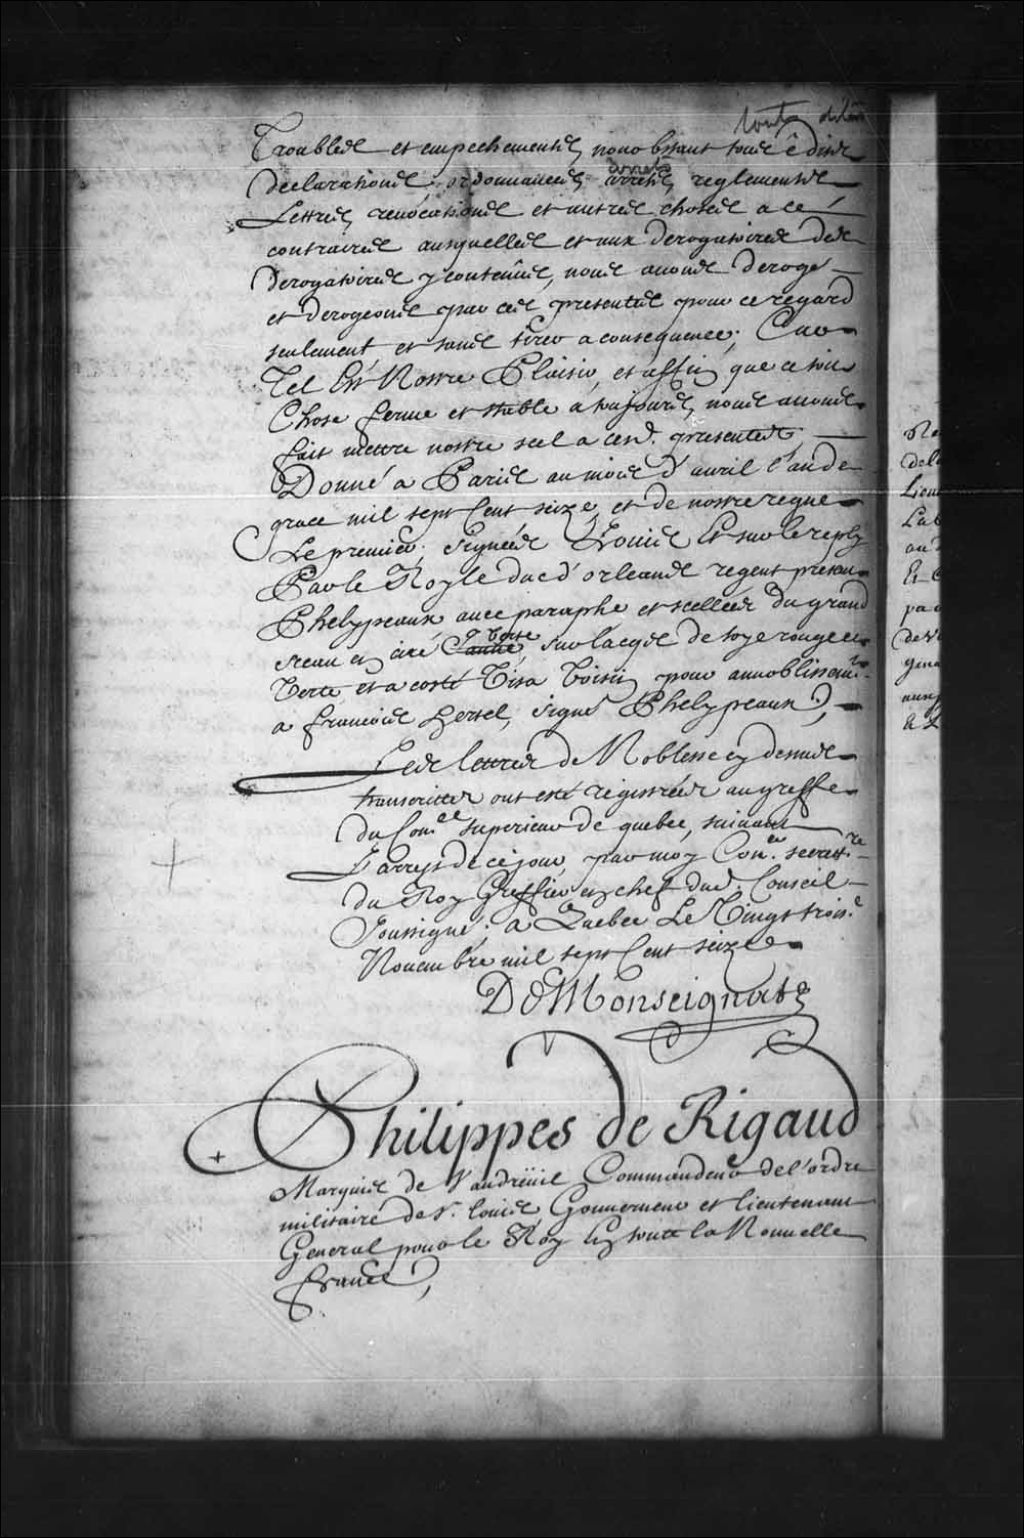 Troubles et empechements, nonobstant tous Edits
declarations, ordonnances, arrests, reglements
Lettres, revocations et autres choses a ce
contraires ausquelles et aux derogatoires des
derogatoires y contenües, nous avons derogé
et derogeons par ces presentes pour ce regard
seulement, et sans tirer a consequence; Car
Tel Est Nostre Plaisir, et affin que ce soit
Chose ferme et stable a toujours, nous avons
fait mettre nostre scel a cesd. presentes,
Donné a Paris au mois d'avril l'an de
grace mil sept Cent seize, et de nostre regne
Le premier; signées Louis Et sur le reply
Par le Roy le duc d'orleans regent present
Phelypeaux avec paraphe et scellées du grand
sceau en cire verte, sur lacqs de soye rouge et
Verte et a costé Visa Voisin pour annoblissemt.
a francois hertel, signé Phelypeaux ./.
Les lettres de Noblesse cy dessus
transcrittes ont esté registrées au greffe
du Con.el superieur de quebec, suivant
L'arrest de ce jour, par moy Con.er secret.re
du Roy Greffier en chef dud. Conseil
soussigné; a Quebec Le Vingt trois.e
Novembre mil sept Cent seize
De Monseignat
Philippes de Rigaud
Marquis de Vaudreüil Commandeur de l'ordre
militaire de St. louis, Gouverneur et lieutenant
General pour le Roy En toutte la Nouvelle
france,